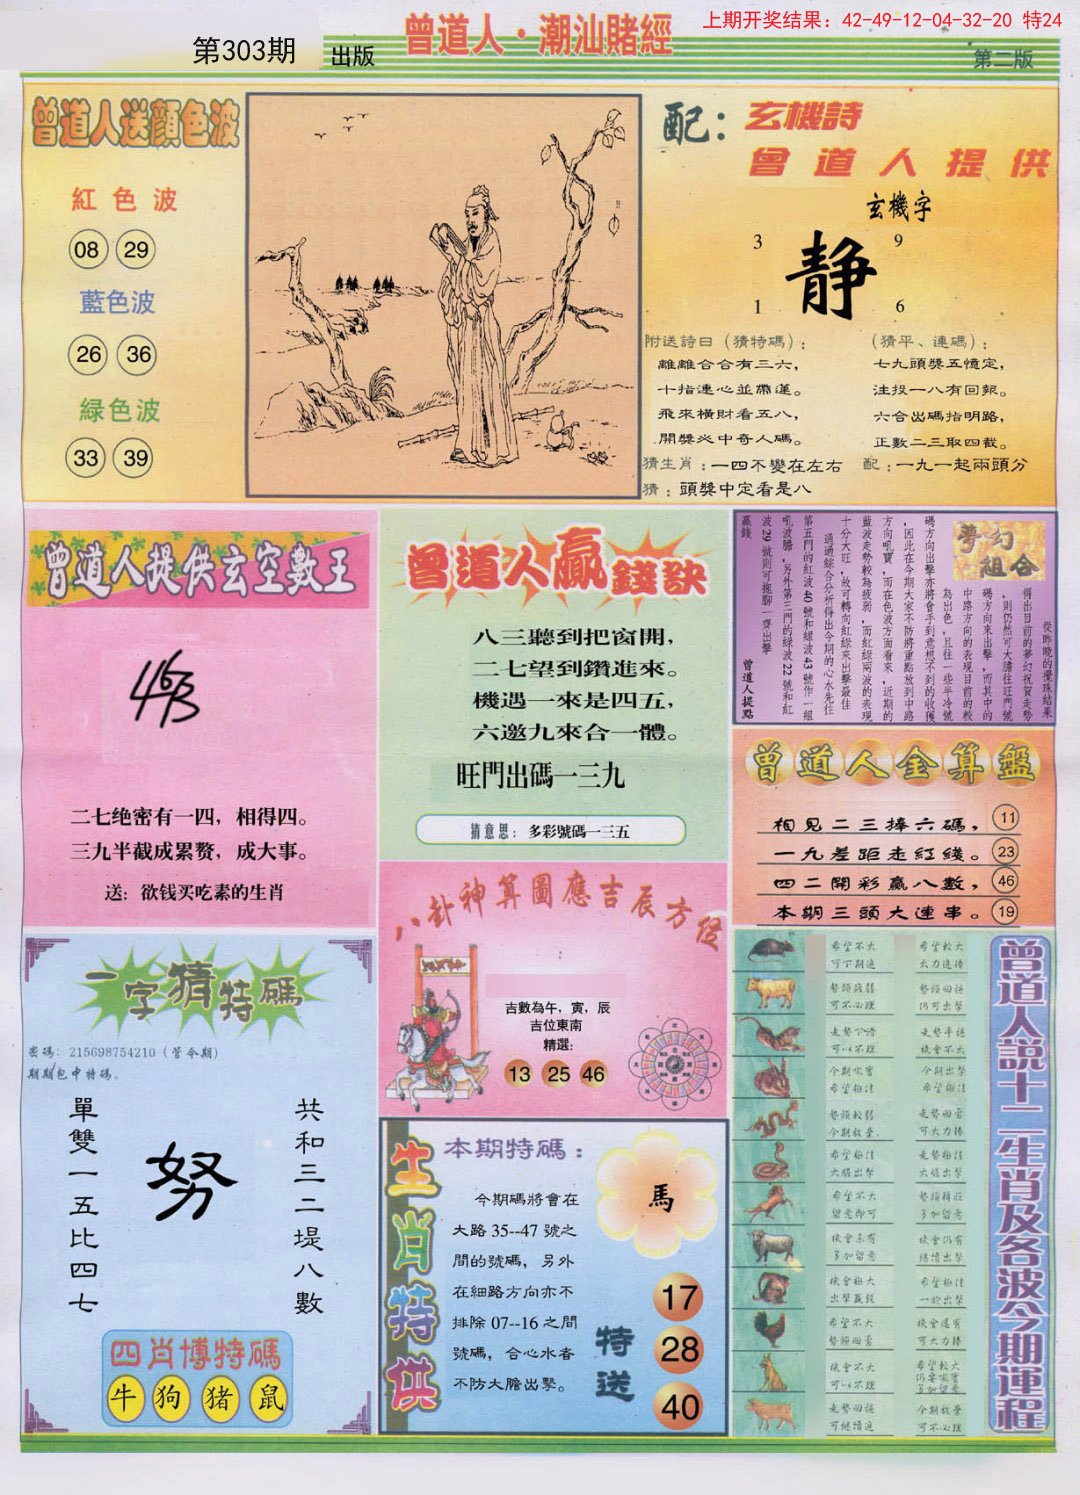 上期开奖结果：42-49-12-04-32-20 特24
第303期
出版
曾道人·潮汕賭經
第二版
曾道人送顏色波
紅色波
08 29
藍色波
26 36
緑色波
33 39
配：玄機詩
曾道人提供
玄機字
3 9
静
1 6
附送詩曰（猜特碼）：
離離合合有三六，
十指連心並蒂蓮。
飛來橫財看五八，
開獎必中奇人碼。
（猜平、連碼）：
七九頭獎五憶定，
注投一八有回報。
六合出碼指明路，
正數二三取四截。
猜生肖：一四不變在左右
配：一九一起兩頭分
猜：頭獎中定看是八
曾道人提供玄空數王
463
二七绝密有一四，相得四。
三九半截成累赘，成大事。
送：欲钱买吃素的生肖
曾道人贏錢訣
八三聽到把窗開，
二七望到鑽進來。
機遇一來是四五，
六邀九來合一體。
旺門出碼一三九
猜意思：多彩號碼一三五
夢幻組合
從昨晚的攪珠結果
得出目前的夢幻祝賀走勢
，則仍然可大膽往旺門號
碼方向來出擊，而其中的
中路方向的表現目前的較
為出色，且往一些半冷號
碼方向出擊亦將會手到意想不到的收獲
，因此在今期大家不防將重點放到中路
方向吼實，而在色波方面看來，近期的
藍波走勢較為疲弱，而紅綠兩波的表現
十分大旺，故可轉向紅綠來出擊最佳
通過綜合分析得出今期的心水先往
第五門的紅波40號和綠波43號作一組
吼波膽，另外第三門的綠波22號和紅
波29號則可拖腳一齊出擊
贏錢
曾道人提點
曾道人金算盤
相見二三捧六碼， 11
一九差距走紅綫。 23
四二開彩贏八數， 46
本期三頭大連串。 19
八卦神算圖應吉辰方位
吉數為午，寅，辰
吉位東南
精選：
13 25 46
一字猜特碼
密碼：215698754210（管令期）
期期包中特碼、
單雙一五比四七
努
共和三二堤八數
四肖博特碼
牛 狗 猪 鼠
生肖特供
本期特碼：
今期碼將會在
大路35--47號之
間的號碼，另外
在細路方向亦不
排除07--16之間
號碼，合心水者
不防大膽出擊。
馬
特送
17
28
40
曾道人說十二生肖及各波今期運程
希望不大
可下期追
希望較大
大力追捧